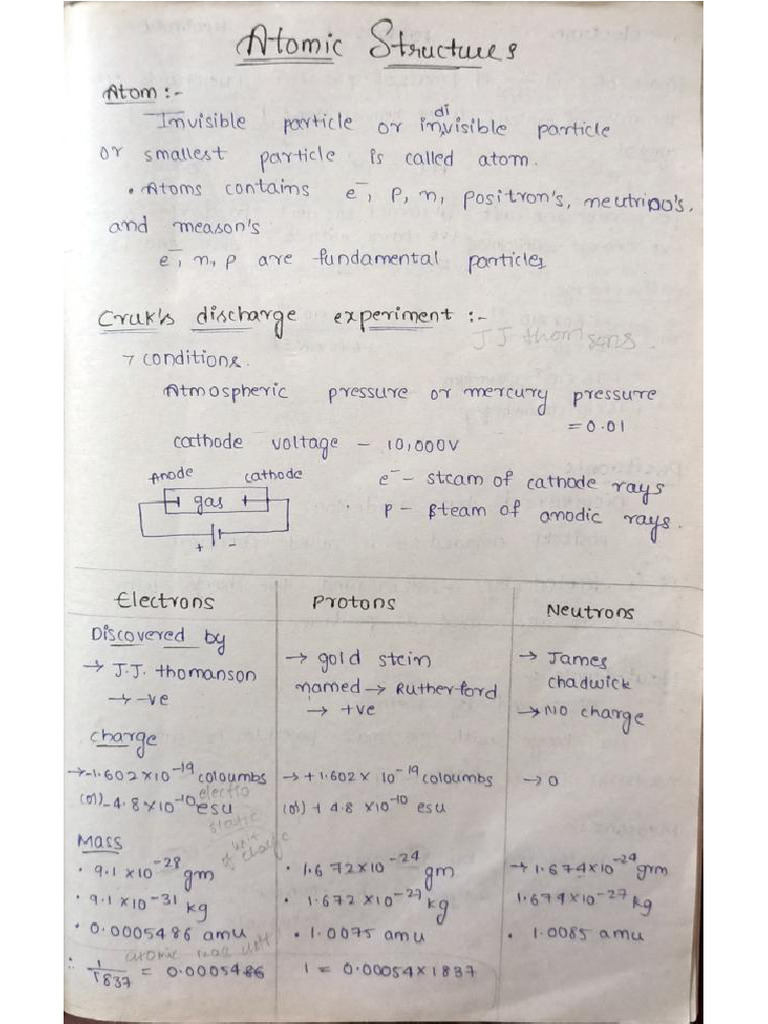 Atomic Structures
Atom :-
Invisible particle or invisible particle
di
or smallest particle is called atom.
• Atoms contains e⁻, P, n, positron's, neutrino's,
and meason's
e⁻, n, p are fundamental particles
Cruk's discharge experiment :-
JJ thomsons.
7 conditions.
Atmospheric pressure or mercury pressure
= 0.01
cathode voltage - 10,000V
Anode cathode
gas
+ -
e⁻ - steam of cathode rays
p - steam of anodic rays.
Electrons
Discovered by
→ J.J. thomanson
→ -ve
charge
→ -1.602×10⁻¹⁹ coloumbs
(or) -4.8×10⁻¹⁰ esu
electro
static
unit
of charge
Mass
• 9.1 ×10⁻²⁸ gm
• 9.1×10⁻³¹ kg
• 0.0005486 amu
atomic mas unit
∴ 1/1837 = 0.0005486
Protons
→ gold stein
named → Rutherford
→ +ve
→ +1.602× 10⁻¹⁹ coloumbs
(or) + 4.8 ×10⁻¹⁰ esu
• 1.672×10⁻²⁴ gm
• 1.672 ×10⁻²⁷ kg
• 1.0075 amu
1 = 0.00054×1837
Neutrons
→ James
chadwick
→ No charge
→ 0
→ 1.674×10⁻²⁴ grm
1.674×10⁻²⁷ kg
• 1.0085 amu